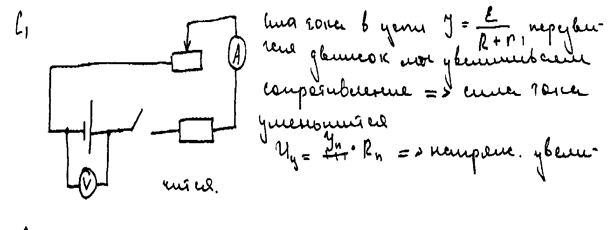 C₁
сила тока в цепи J = E / (R + r), передви-
гая движок мы увеличиваем
сопротивление => сила тока
уменьшится
U_y = J_n · R_n => напряж. увели-
чится.
A
V